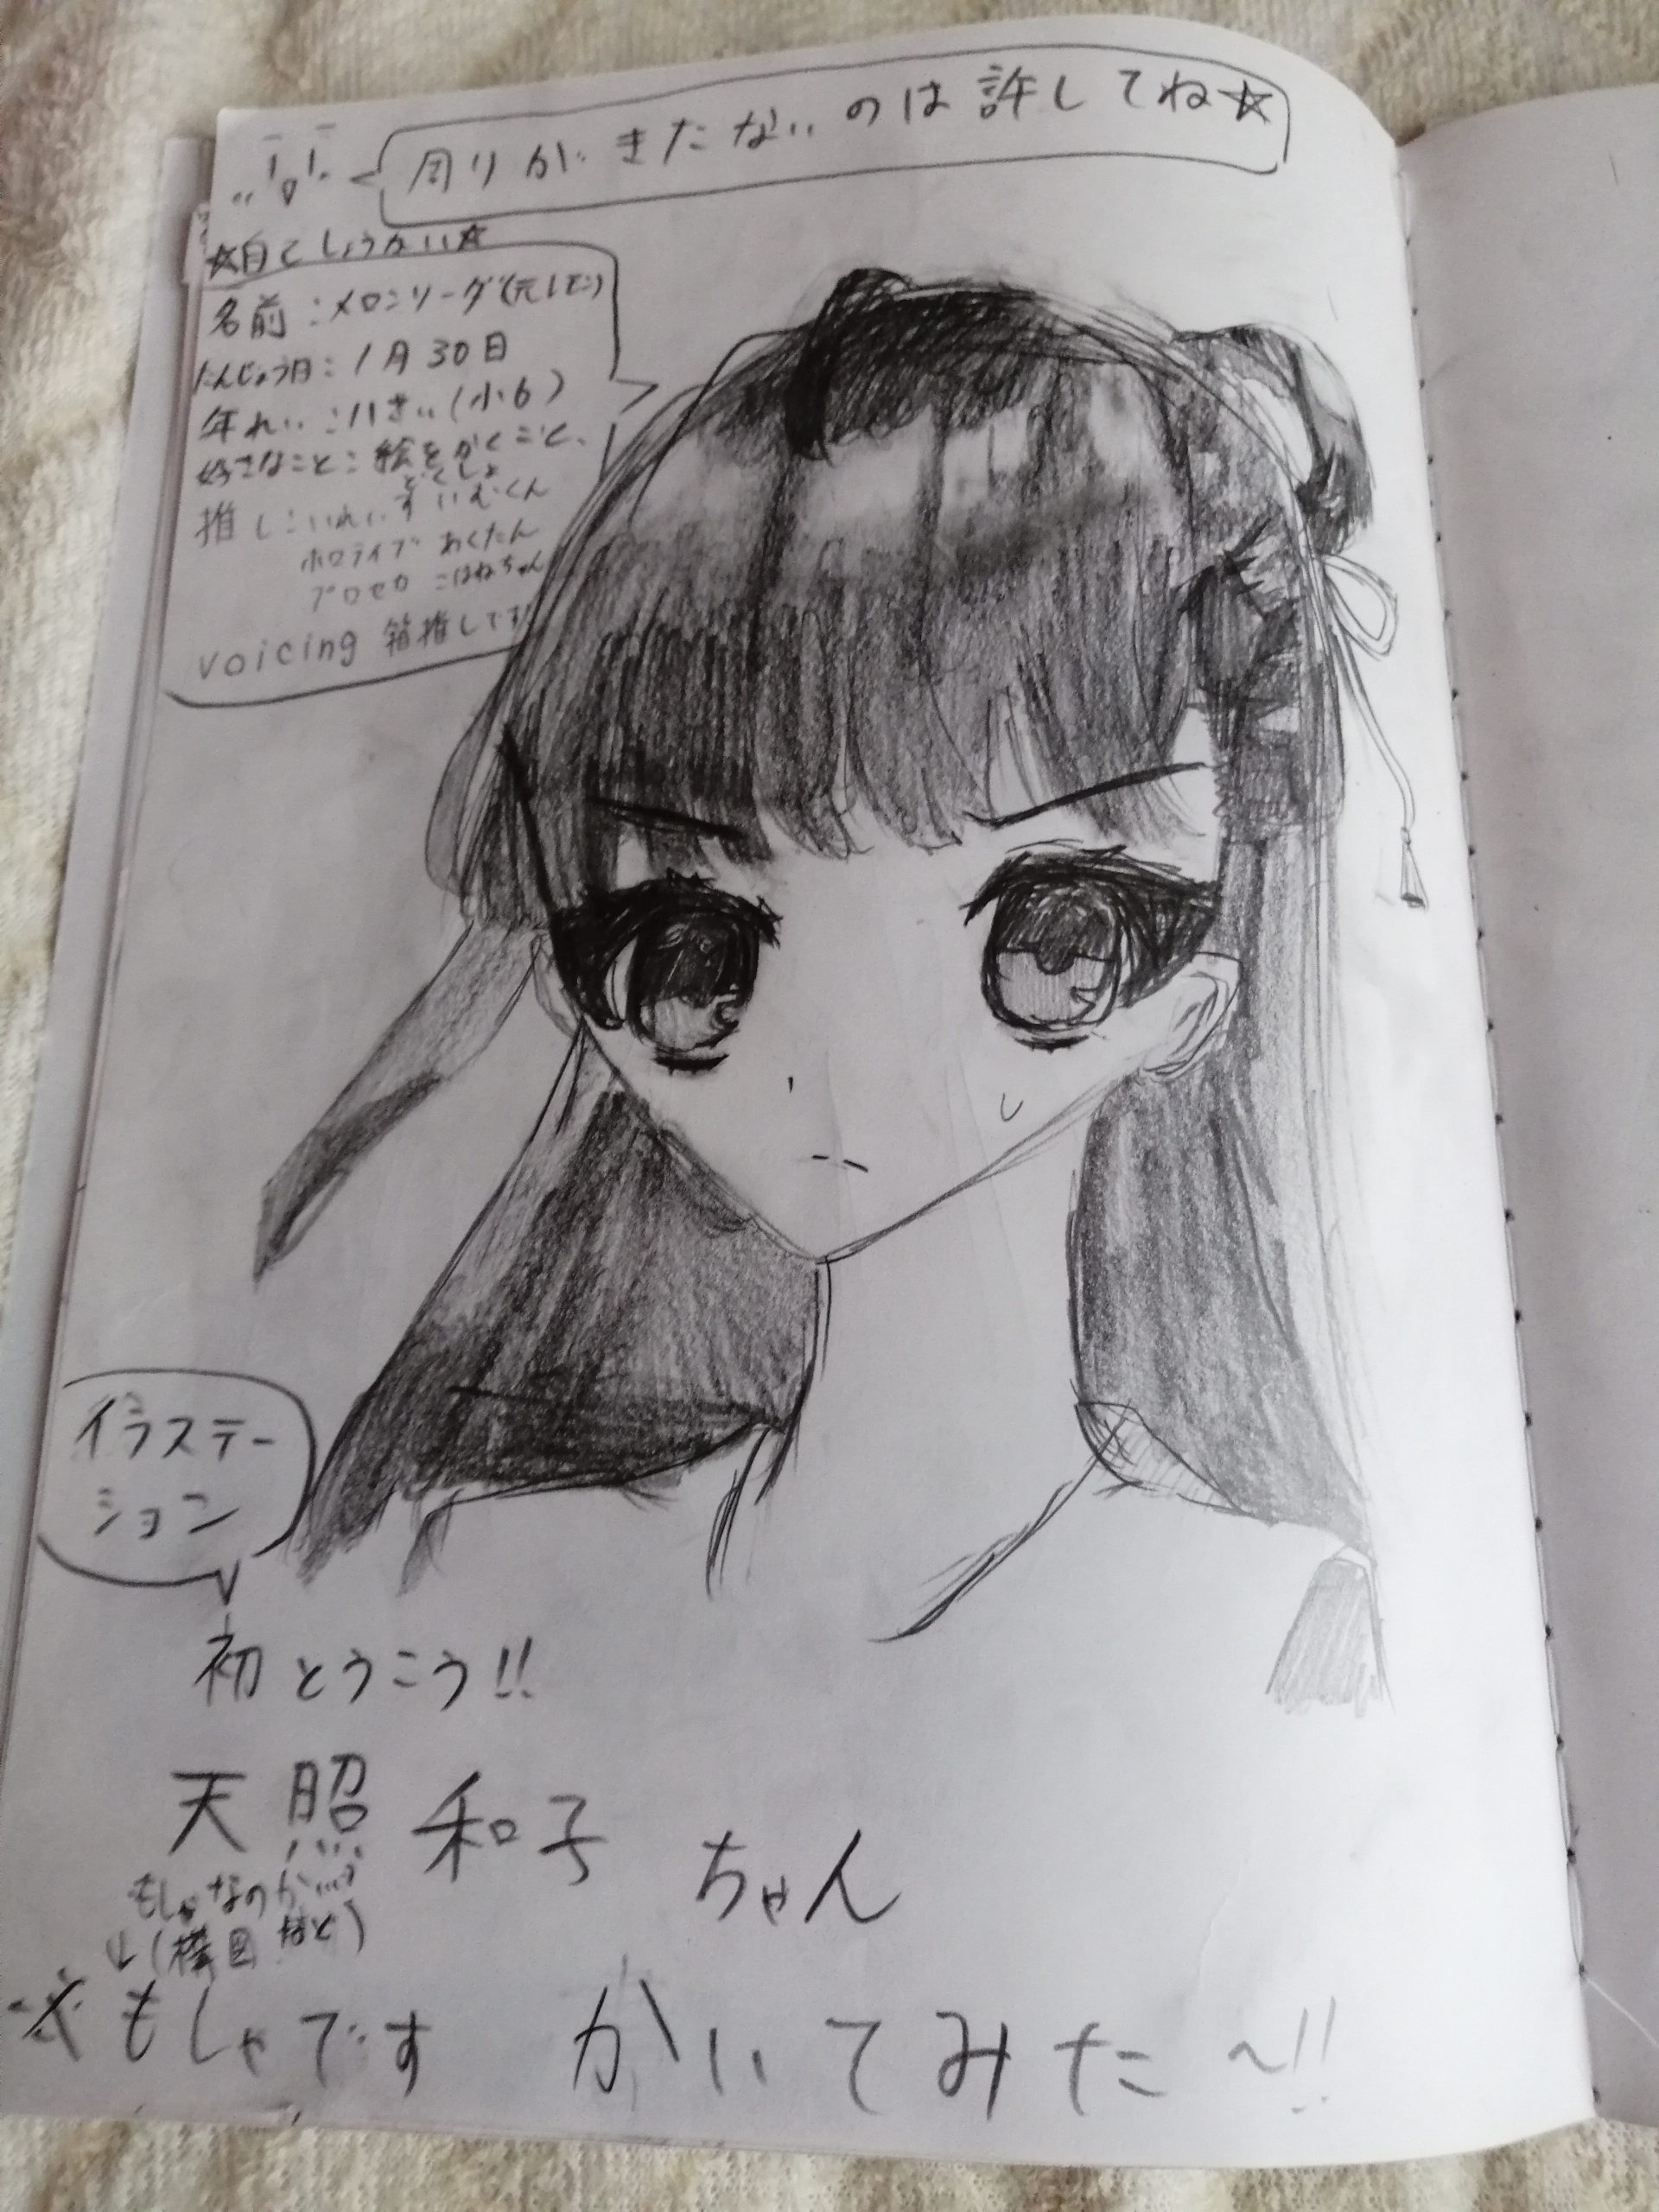 周りがきたないのは許してね☆
☆自こしょうかい☆
名前：メロンソーダ(元レモン)
たんじょう日：1月30日
年れい：11さい(小6)
好きなこと：絵をかくこと、
どくしょ
推し：いれいす いむくん
ホロライブ あくたん
プロセカ こはねちゃん
voicing 箱推しです
イラステー
ション
初とうこう!!
天照 和子 ちゃん
もしゃなのか…?
↓(構図など)
☆もしゃです かいてみた〜!!